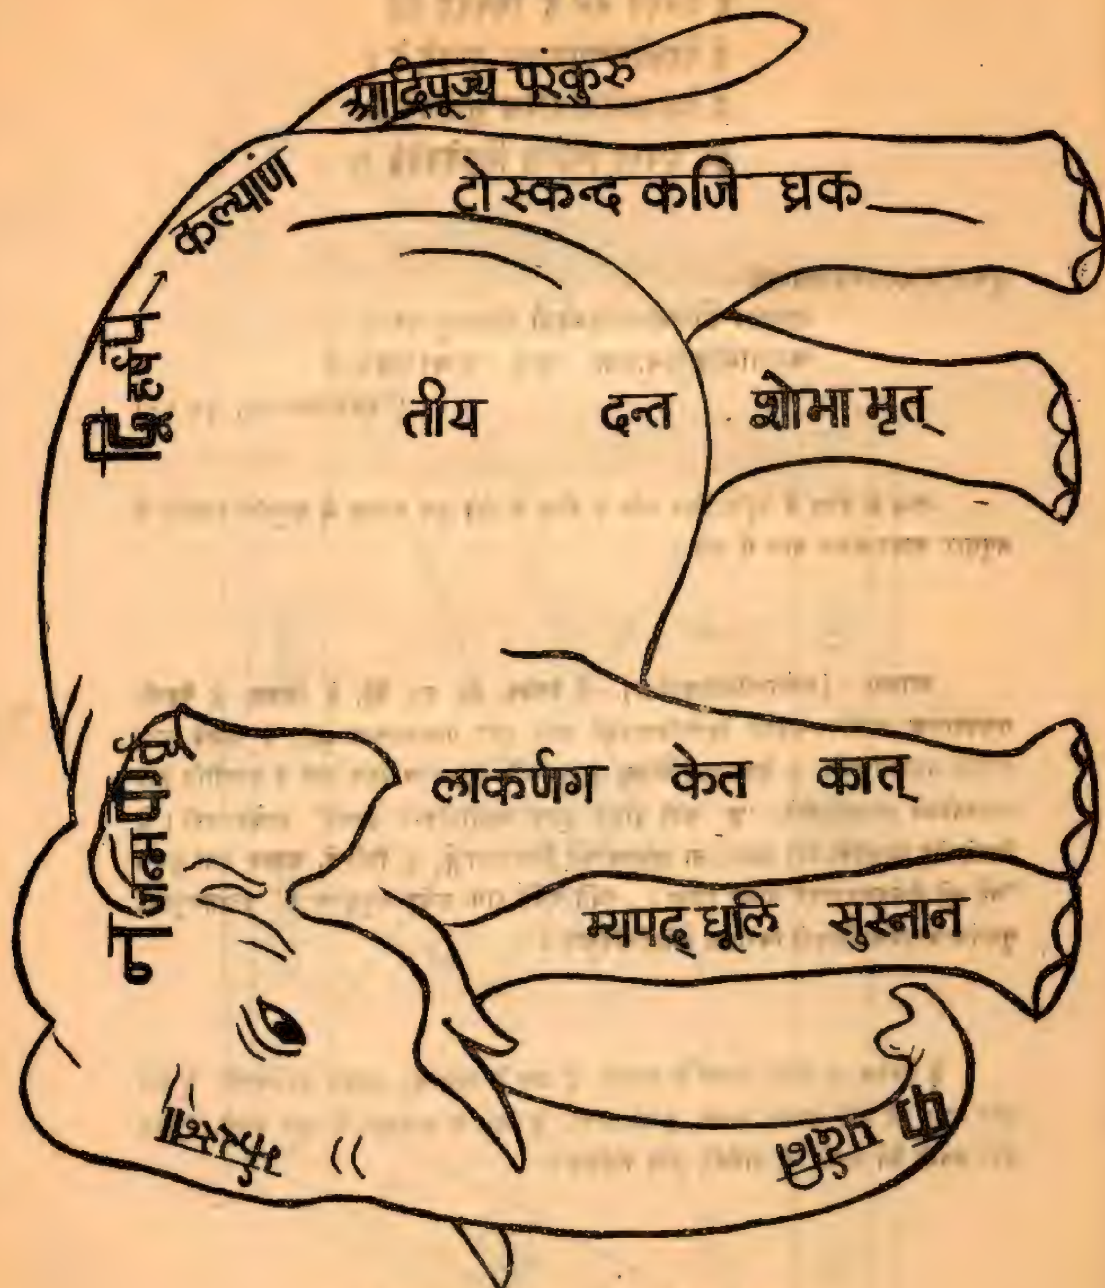 आदिपूज्य परंकुरु
कल्याण
टोस्कन्द कजि घ्रक
द्वि हर्षप
तीय दन्त शोभा भृत्
न जन्म पीयू
लाकर्णग केत कात्
म्यपद् धूलि सुस्नान